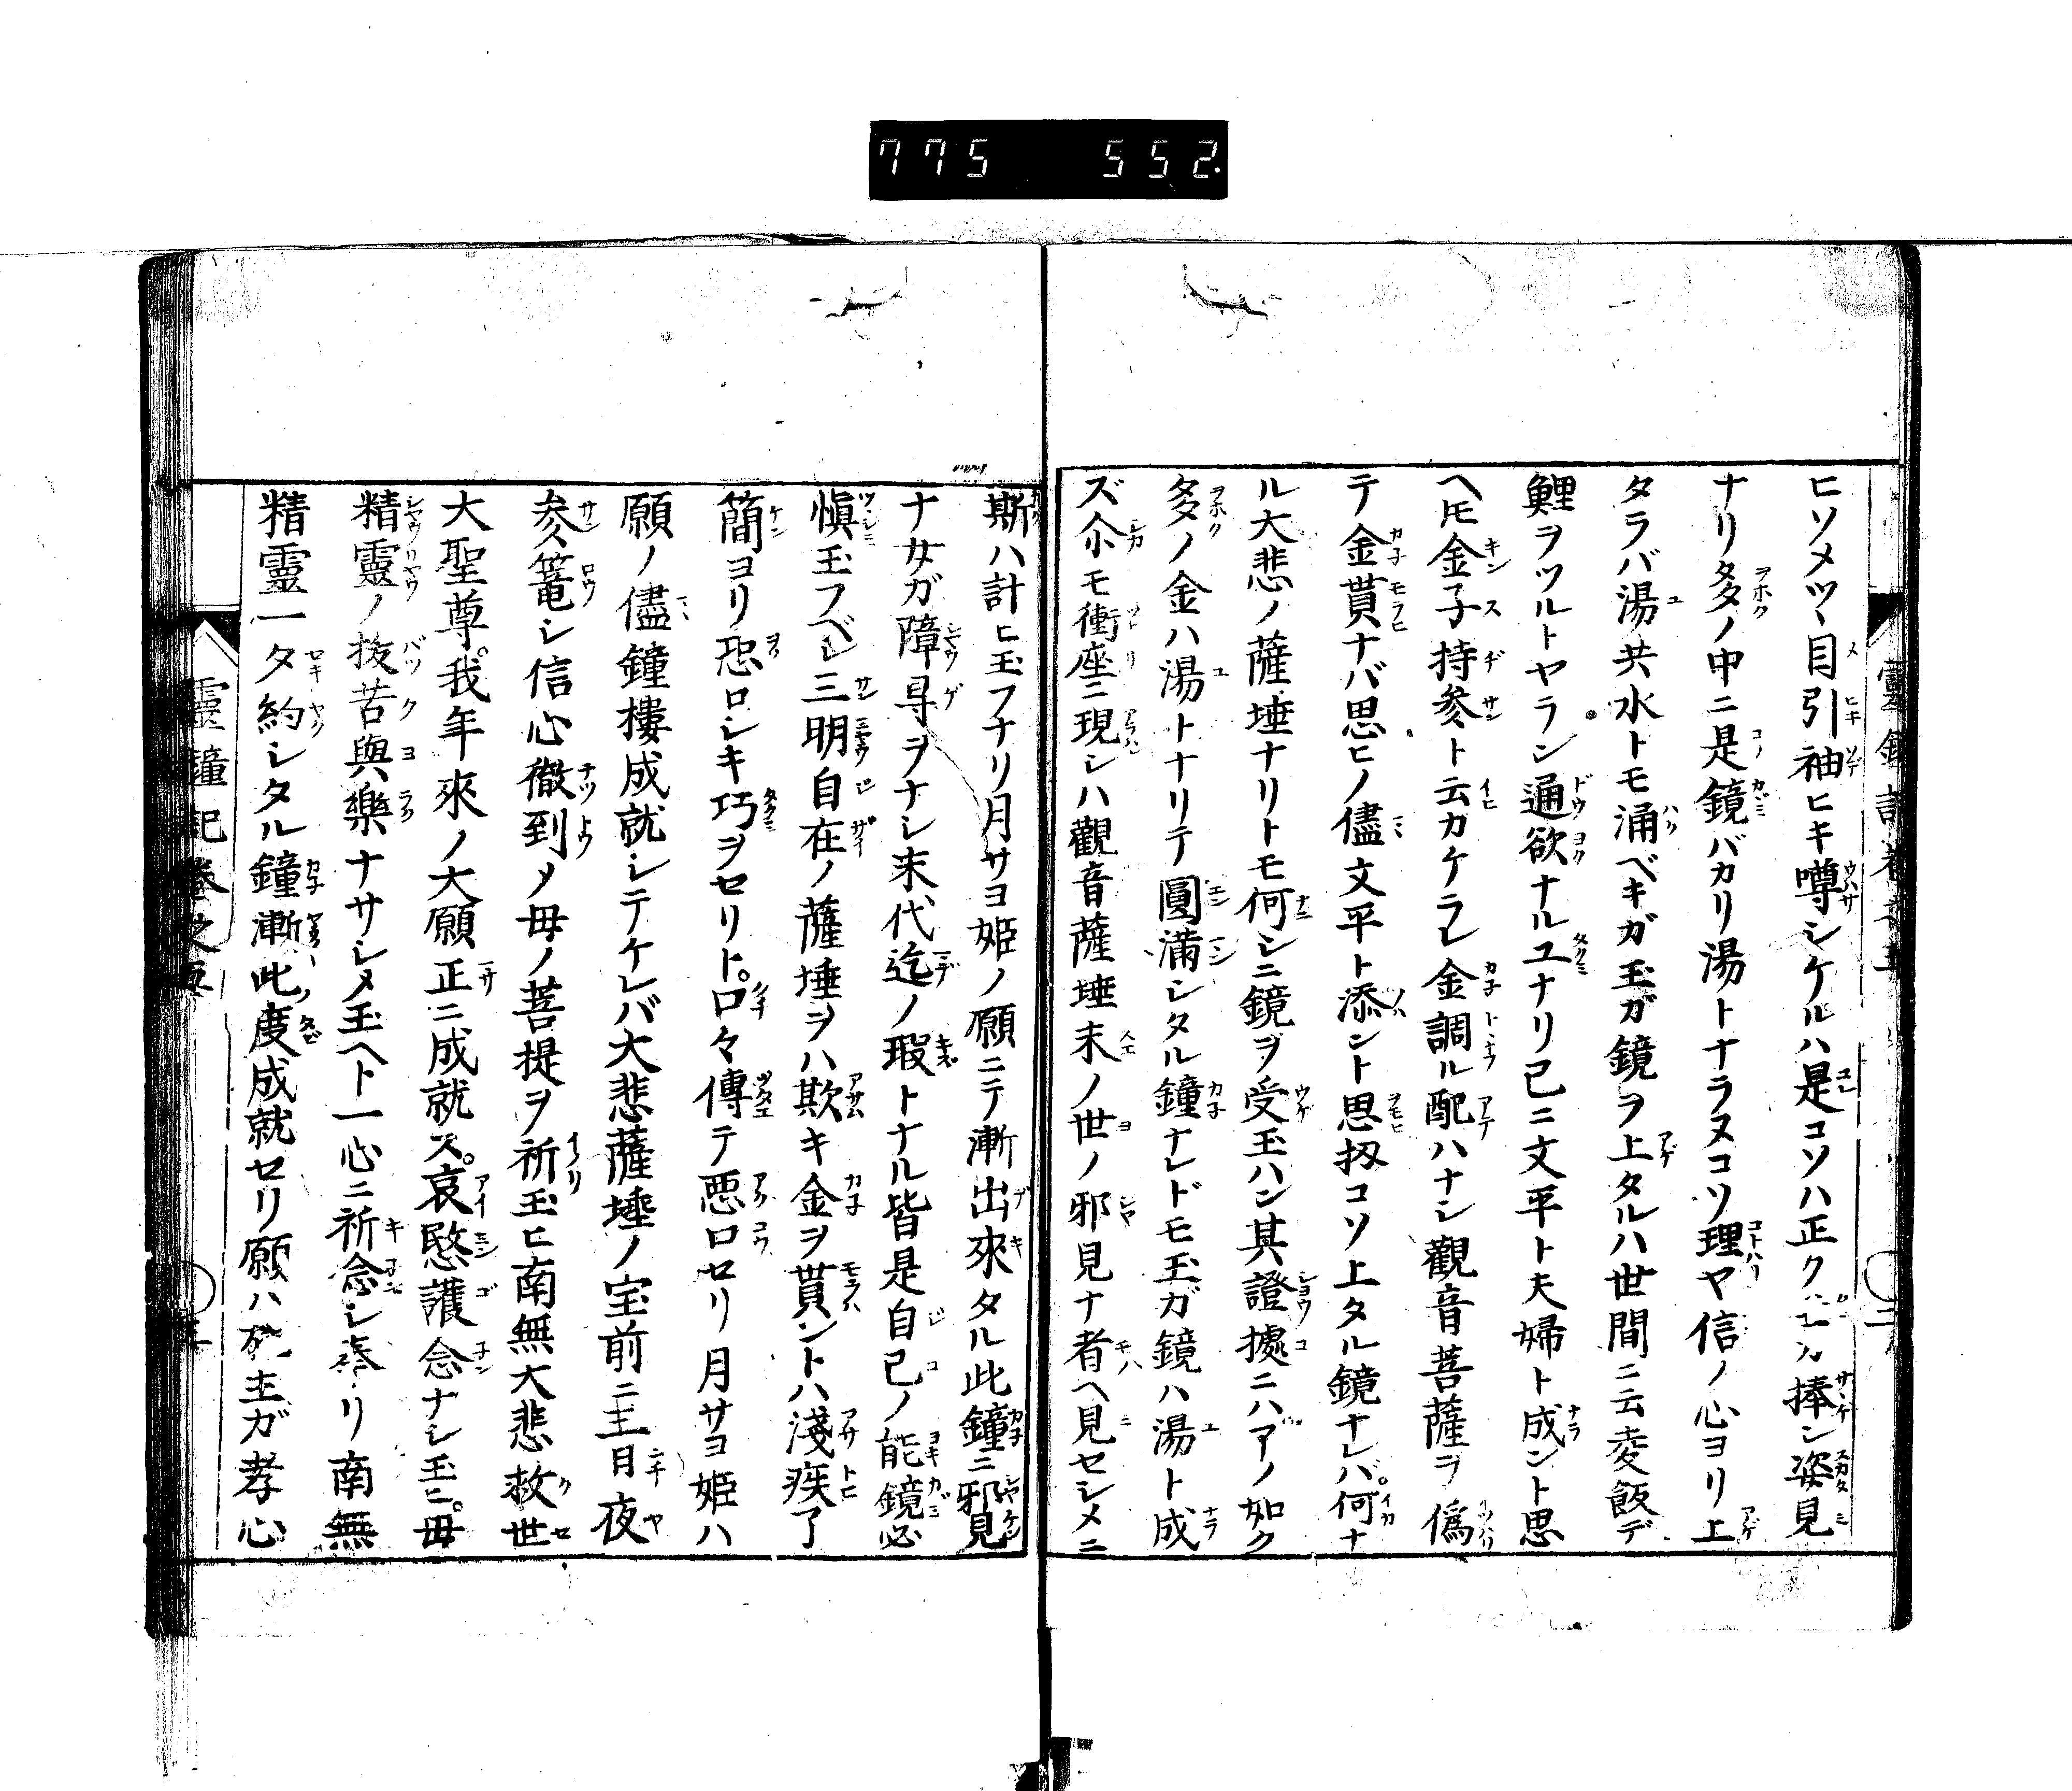 775 552
ヒソメツヽ目引袖ヒキ噂シケルハ是コソハ正ク捧ン姿見
ナリ多ノ中ニ是鏡バカリ湯トナラヌコソ理ヤ信ノ心ヨリ上
タラバ湯ノ共水トモ涌ベキガ玉ガ鏡ヲ上タルハ世間ニ云夌飯デ
鯉ヲツルトヤラン通欲ナルユナリ已ニ文平ト夫婦ト成ント思
ヘ𪜈金子持参ト云カケラレ金調ル配ハナシ觀音菩薩ヲ僞
テ金貰ナバ思ヒノ儘文平ト添ント思扨コソ上タル鏡ナレバ何ナ
ル大悲ノ薩埵ナリトモ何シニ鏡ヲ受玉ハン其證據ニハアノ如ク
多ノ金ハ湯トナリテ圓滿シタル鐘ナレドモ玉ガ鏡ハ湯ト成
ズ尒モ衝座ニ現シハ觀音薩埵末ノ世ノ邪見ナ者ヘ見セシメニ
斯ハ計ヒ玉フナリ月サヨ姫ノ願ニテ漸出來タル此鐘ニ邪見
ナ女ガ障㝵ヲナシ末代迄ノ瑕トナル皆是自已ノ能鏡必
愼玉フベシ三明自在ノ薩埵ヲハ欺キ金ヲ貰ントハ淺疾了
簡ヨリ恐ロシキ巧ヲセリト口々傳テ悪口セリ月サヨ姫ハ
願ノ儘鐘樓成就シテケレバ大悲薩埵ノ宝前ニ三日夜
参篭シ信心徹到〆母ノ菩提ヲ祈玉ヒ南無大悲救世
大聖尊我年來ノ大願正ニ成就ス哀愍護念ナシ玉ヒ母
精靈ノ抜苦與樂ナサシメ玉ヘト一心ニ祈念シ奉リ南無
精靈一タ約シタル鐘漸此度成就セリ願ハ施主ガ孝心
靈鐘記卷之五